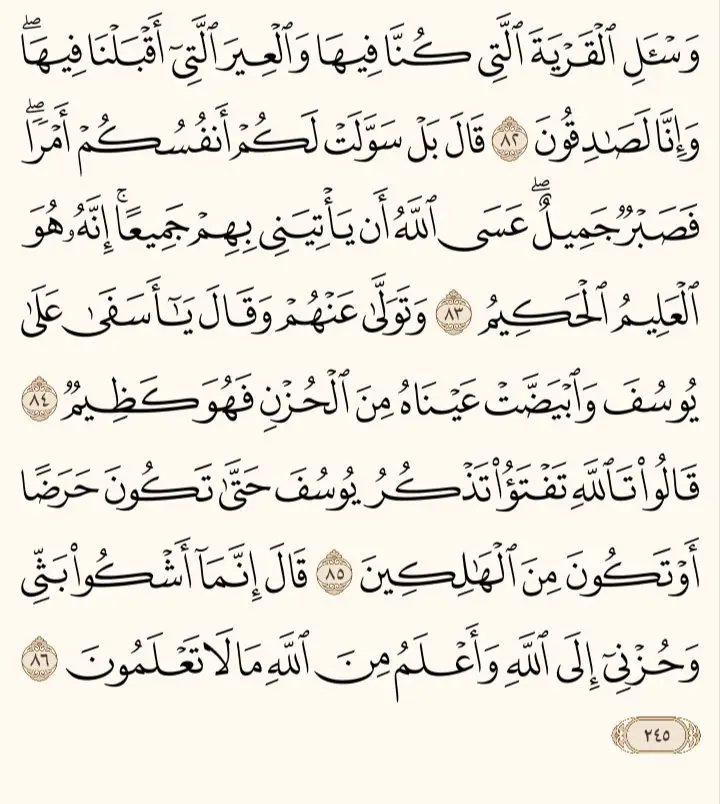 وَسْـَٔلِ ٱلْقَرْيَةَ ٱلَّتِى كُنَّا فِيهَا وَٱلْعِيرَ ٱلَّتِىٓ أَقْبَلْنَا فِيهَاۖ
وَإِنَّا لَصَـٰدِقُونَ ٨٢ قَالَ بَلْ سَوَّلَتْ لَكُمْ أَنفُسُكُمْ أَمْرًاۖ
فَصَبْرٌ جَمِيلٌۖ عَسَى ٱللَّهُ أَن يَأْتِيَنِى بِهِمْ جَمِيعًاۚ إِنَّهُۥ هُوَ
ٱلْعَلِيمُ ٱلْحَكِيمُ ٨٣ وَتَوَلَّىٰ عَنْهُمْ وَقَالَ يَـٰٓأَسَفَىٰ عَلَىٰ
يُوسُفَ وَٱبْيَضَّتْ عَيْنَاهُ مِنَ ٱلْحُزْنِ فَهُوَ كَظِيمٌ ٨٤
قَالُوا۟ تَٱللَّهِ تَفْتَؤُا۟ تَذْكُرُ يُوسُفَ حَتَّىٰ تَكُونَ حَرَضًا
أَوْ تَكُونَ مِنَ ٱلْهَـٰلِكِينَ ٨٥ قَالَ إِنَّمَآ أَشْكُوا۟ بَثِّى
وَحُزْنِىٓ إِلَى ٱللَّهِ وَأَعْلَمُ مِنَ ٱللَّهِ مَا لَا تَعْلَمُونَ ٨٦
٢٤٥